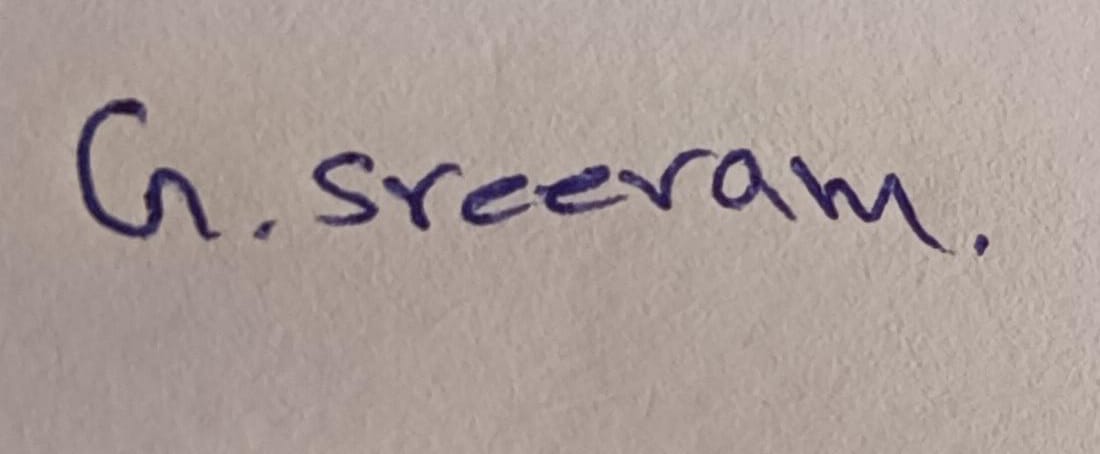 G. sreeram.